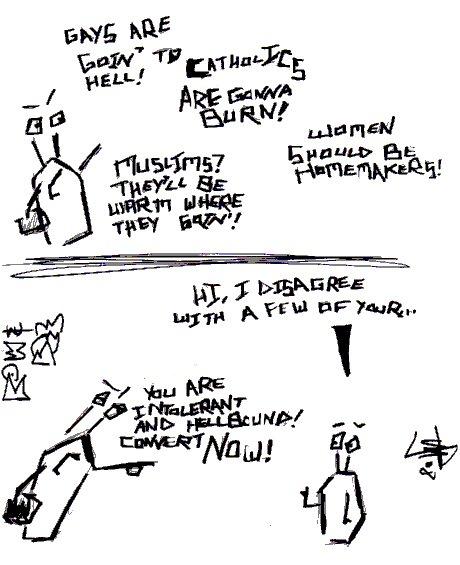 GAYS ARE
GOIN' TO
HELL!
CATHOLICS
ARE GONNA
BURN!
MUSLIMS?
THEY'LL BE
WARM WHERE
THEY GOIN'!
WOMEN
SHOULD BE
HOMEMAKERS!
HI, I DISAGREE
WITH A FEW OF YOUR...
YOU ARE
INTOLERANT
AND HELLBOUND!
CONVERT NOW!